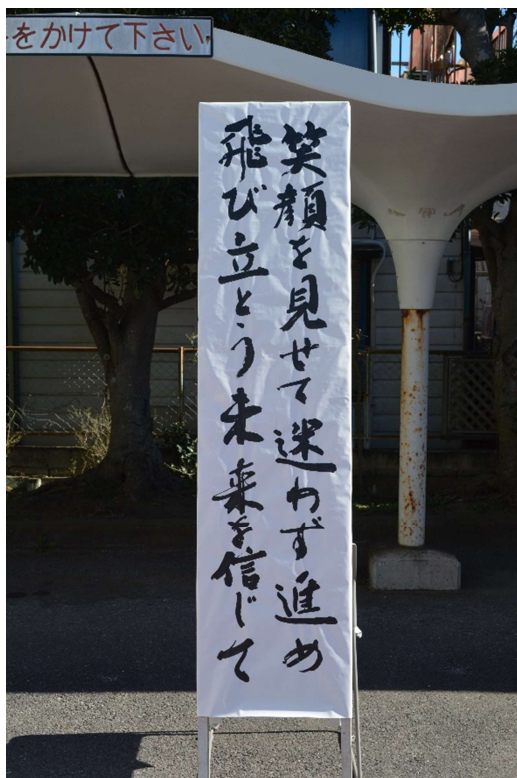 をかけて下さい
笑顔を見せて迷わず進め
飛び立とう未来を信じて